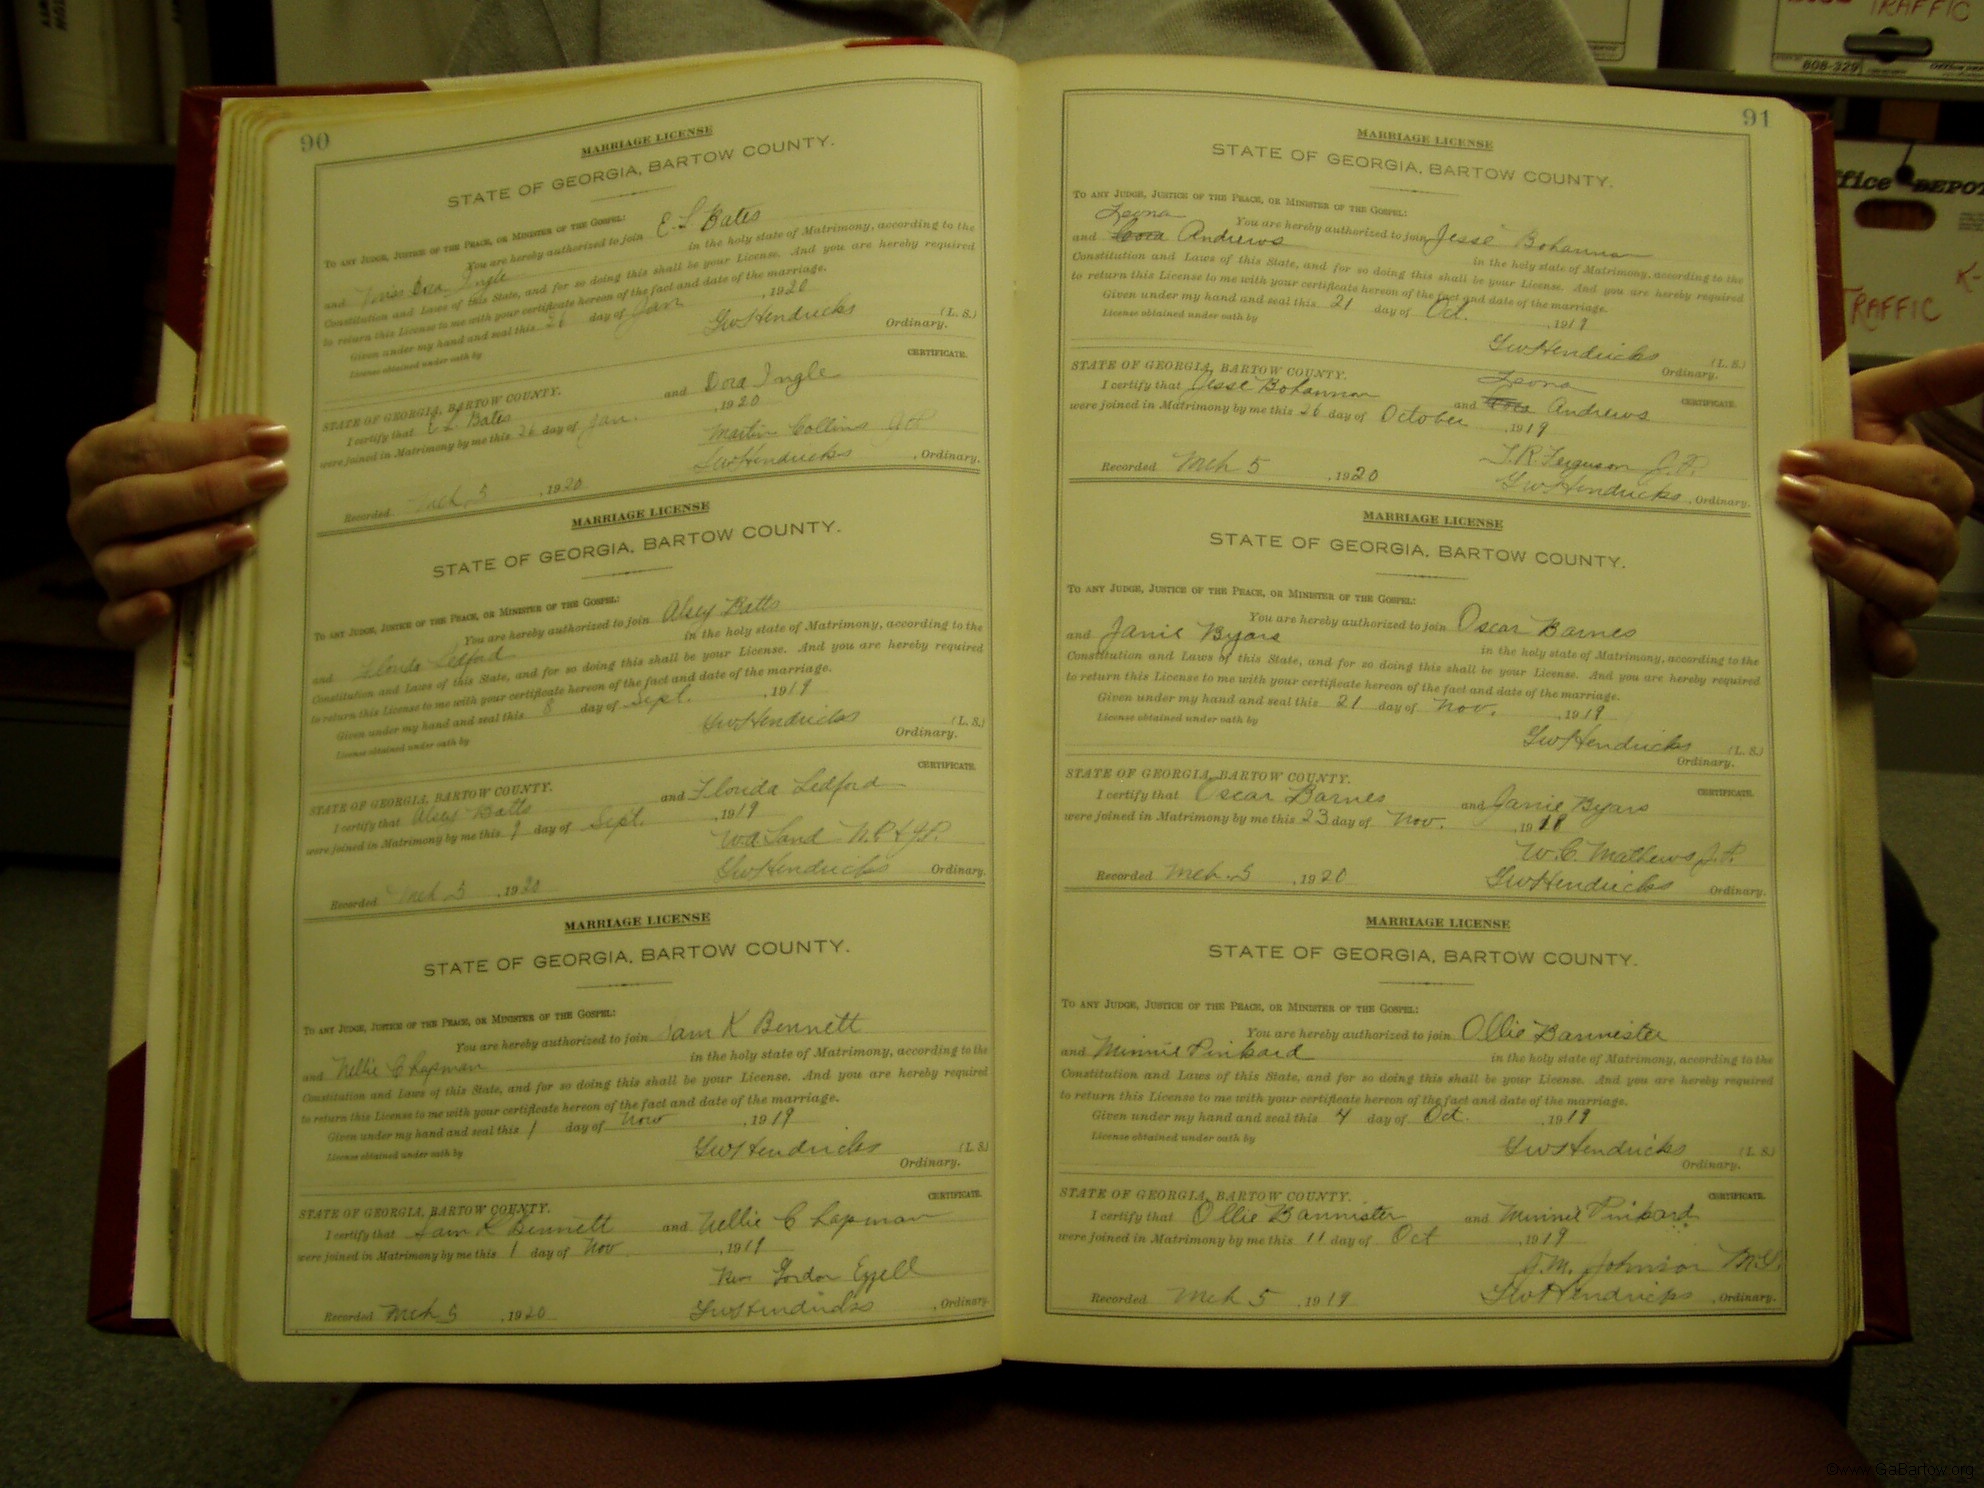 90
MARRIAGE LICENSE
STATE OF GEORGIA, BARTOW COUNTY.
TO ANY JUDGE, JUSTICE OF THE PEACE, OR MINISTER OF THE GOSPEL:
You are hereby authorized to join E. L. Bates
and Miss Dora Ingle in the holy state of Matrimony, according to the
Constitution and Laws of this State, and for so doing this shall be your License. And you are hereby required
to return this License to me with your certificate hereon of the fact and date of the marriage.
Given under my hand and seal this 26 day of Jan , 1920
License obtained under oath by
GW Hendricks (L. S.)
Ordinary.
CERTIFICATE.
STATE OF GEORGIA, BARTOW COUNTY.
I certify that E. L. Bates and Dora Ingle
were joined in Matrimony by me this 26 day of Jan. , 1920
Martin Collins J P
Recorded Mch 5 , 1920 GW Hendricks , Ordinary.
MARRIAGE LICENSE
STATE OF GEORGIA, BARTOW COUNTY.
TO ANY JUDGE, JUSTICE OF THE PEACE, OR MINISTER OF THE GOSPEL:
You are hereby authorized to join Alsey Batts
and Flonda Ledford in the holy state of Matrimony, according to the
Constitution and Laws of this State, and for so doing this shall be your License. And you are hereby required
to return this License to me with your certificate hereon of the fact and date of the marriage.
Given under my hand and seal this 8 day of Sept. , 1919
License obtained under oath by
GW Hendricks (L. S.)
Ordinary.
CERTIFICATE.
STATE OF GEORGIA, BARTOW COUNTY.
I certify that Alsey Batts and Flonda Ledford
were joined in Matrimony by me this day of Sept. , 1919
W.A. Land N.P. & J.P.
Recorded Mch 5 , 1920 GW Hendricks Ordinary.
MARRIAGE LICENSE
STATE OF GEORGIA, BARTOW COUNTY.
TO ANY JUDGE, JUSTICE OF THE PEACE, OR MINISTER OF THE GOSPEL:
You are hereby authorized to join Sam K Bennett
and Nellie Chapman in the holy state of Matrimony, according to the
Constitution and Laws of this State, and for so doing this shall be your License. And you are hereby required
to return this License to me with your certificate hereon of the fact and date of the marriage.
Given under my hand and seal this 1 day of Nov , 1919
License obtained under oath by
GW Hendricks (L. S.)
Ordinary.
CERTIFICATE.
STATE OF GEORGIA, BARTOW COUNTY.
I certify that Sam K Bennett and Nellie Chapman
were joined in Matrimony by me this 1 day of Nov , 1919
Rev Gordon Ezzell
Recorded Mch 5 , 1920 GW Hendricks , Ordinary.
91
MARRIAGE LICENSE
STATE OF GEORGIA, BARTOW COUNTY.
TO ANY JUDGE, JUSTICE OF THE PEACE, OR MINISTER OF THE GOSPEL:
Leona
You are hereby authorized to join Jesse Bohannon
and Andrews in the holy state of Matrimony, according to the
Constitution and Laws of this State, and for so doing this shall be your License. And you are hereby required
to return this License to me with your certificate hereon of the fact and date of the marriage.
Given under my hand and seal this 21 day of Oct. , 1919
License obtained under oath by
GW Hendricks (L. S.)
Ordinary.
STATE OF GEORGIA, BARTOW COUNTY. Leona CERTIFICATE.
I certify that Jesse Bohannon and Andrews
were joined in Matrimony by me this 26 day of October , 1919
T. R. Ferguson J. P.
Recorded Mch 5 , 1920 GW Hendricks , Ordinary.
MARRIAGE LICENSE
STATE OF GEORGIA, BARTOW COUNTY.
TO ANY JUDGE, JUSTICE OF THE PEACE, OR MINISTER OF THE GOSPEL:
You are hereby authorized to join Oscar Barnes
and Janie Byars in the holy state of Matrimony, according to the
Constitution and Laws of this State, and for so doing this shall be your License. And you are hereby required
to return this License to me with your certificate hereon of the fact and date of the marriage.
Given under my hand and seal this 21 day of Nov. , 1919
License obtained under oath by
GW Hendricks (L. S.)
Ordinary.
STATE OF GEORGIA, BARTOW COUNTY. CERTIFICATE.
I certify that Oscar Barnes and Janie Byars
were joined in Matrimony by me this 23 day of Nov. , 19
W. C. Mathews J. P.
Recorded Mch 5 , 1920 GW Hendricks Ordinary.
MARRIAGE LICENSE
STATE OF GEORGIA, BARTOW COUNTY.
TO ANY JUDGE, JUSTICE OF THE PEACE, OR MINISTER OF THE GOSPEL:
You are hereby authorized to join Ollie Bannister
and Minnie Pinkard in the holy state of Matrimony, according to the
Constitution and Laws of this State, and for so doing this shall be your License. And you are hereby required
to return this License to me with your certificate hereon of the fact and date of the marriage.
Given under my hand and seal this 4 day of Oct. , 1919
License obtained under oath by
GW Hendricks (L. S.)
Ordinary.
STATE OF GEORGIA, BARTOW COUNTY. CERTIFICATE.
I certify that Ollie Bannister and Minnie Pinkard
were joined in Matrimony by me this 11 day of Oct , 1919
J. M. Johnson M.G.
Recorded Mch 5 , 1919 GW Hendricks , Ordinary.
TRAFFIC
808-329
Office DEPOT
TRAFFIC
K-
©www.GaBartow.org